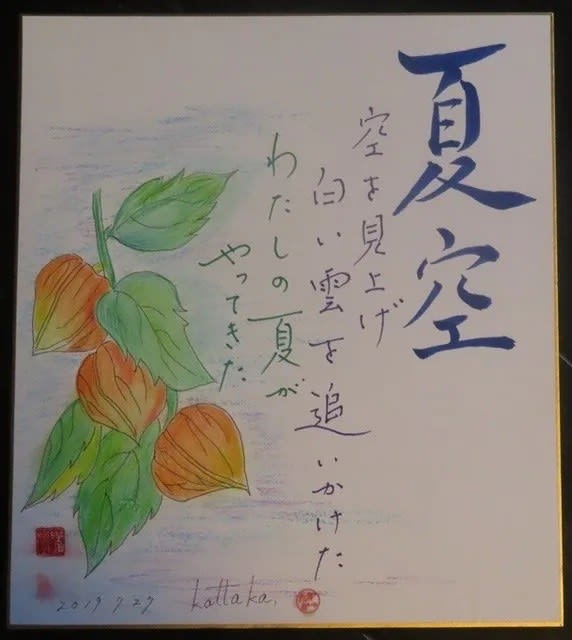 夏空
空を見上げ
白い雲を追いかけた
わたしの夏が
やってきた
2019 7.27
kattaka.